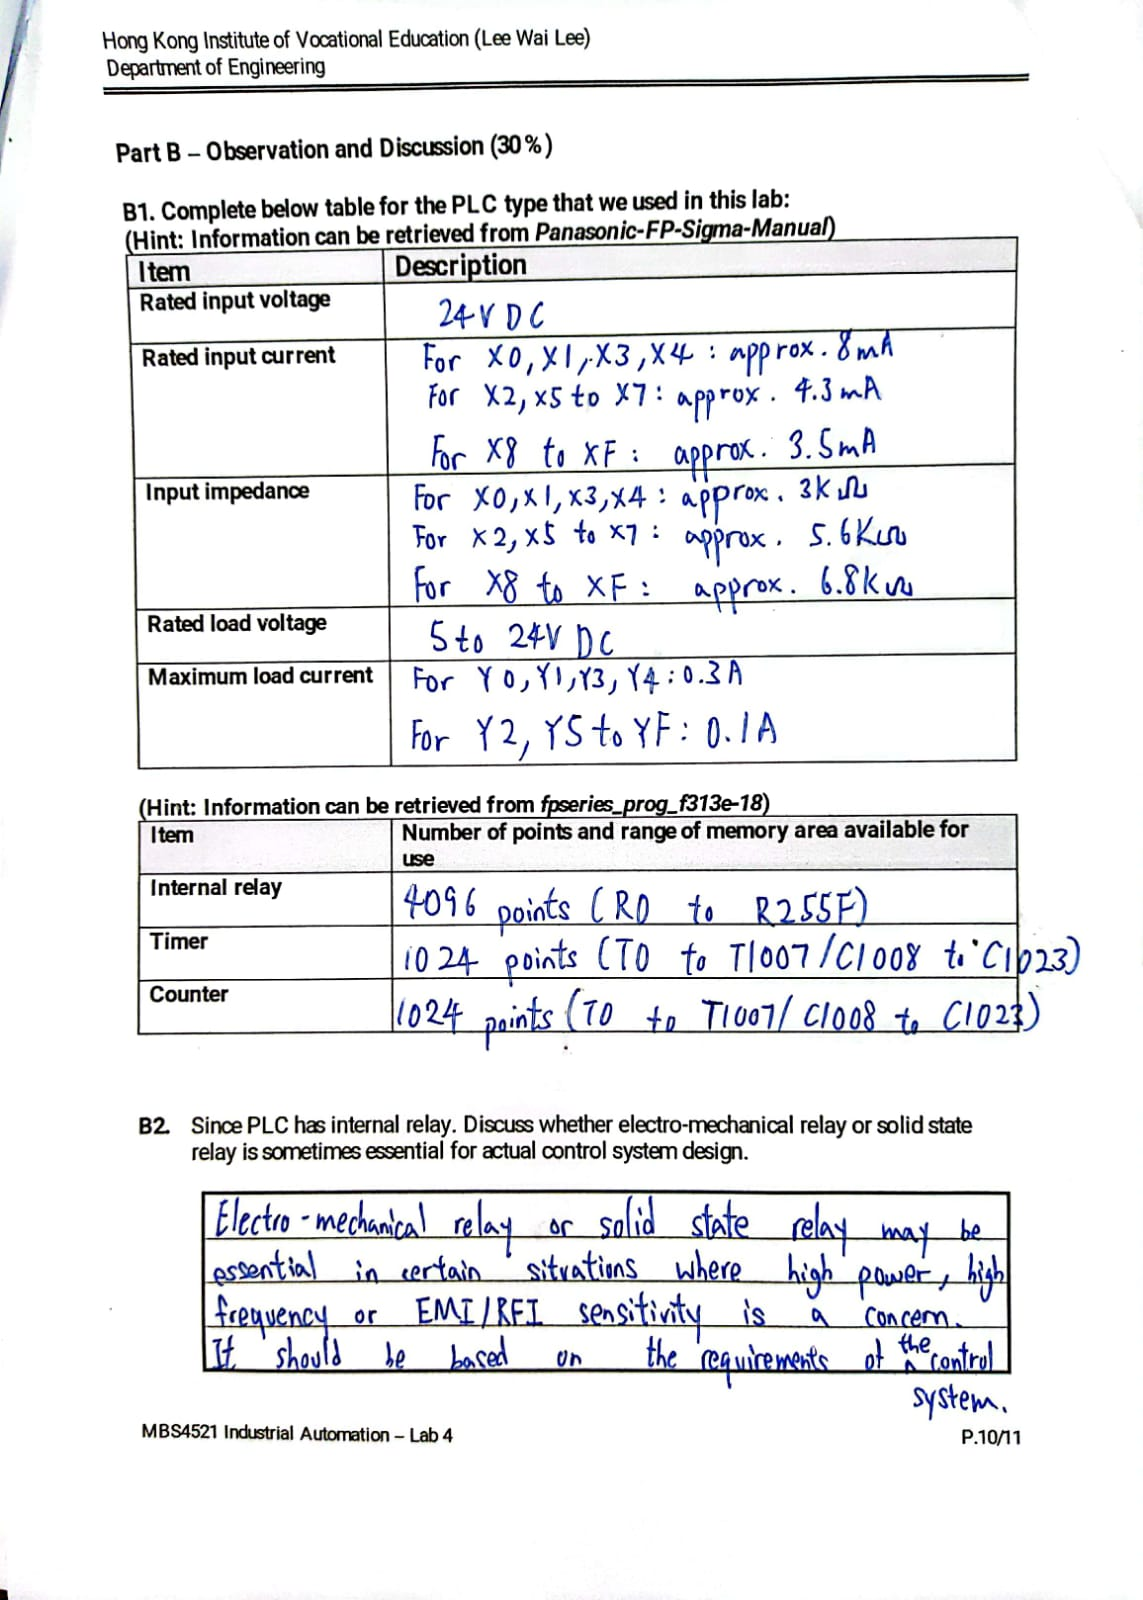 Hong Kong Institute of Vocational Education (Lee Wai Lee)
Department of Engineering
Part B – Observation and Discussion (30%)
B1. Complete below table for the PLC type that we used in this lab:
(Hint: Information can be retrieved from Panasonic-FP-Sigma-Manual)
Item Description
Rated input voltage 24V DC
Rated input current For X0, X1, X3, X4 : approx. 8mA
For X2, X5 to X7 : approx. 4.3mA
For X8 to XF : approx. 3.5mA
Input impedance For X0, X1, X3, X4 : approx. 3KΩ
For X2, X5 to X7 : approx. 5.6KΩ
For X8 to XF : approx. 6.8KΩ
Rated load voltage 5 to 24V DC
Maximum load current For Y0, Y1, Y3, Y4 : 0.3A
For Y2, Y5 to YF : 0.1A
(Hint: Information can be retrieved from fpseries_prog_f313e-18)
Item Number of points and range of memory area available for
use
Internal relay 4096 points (R0 to R255F)
Timer 1024 points (T0 to T1007/C1008 to C1023)
Counter 1024 points (T0 to T1007/ C1008 to C1023)
B2. Since PLC has internal relay. Discuss whether electro-mechanical relay or solid state
relay is sometimes essential for actual control system design.
Electro-mechanical relay or solid state relay may be
essential in certain situations where high power, high
frequency or EMI/RFI sensitivity is a concern.
It should be based on the requirements of the control
system.
MBS4521 Industrial Automation – Lab 4
P.10/11